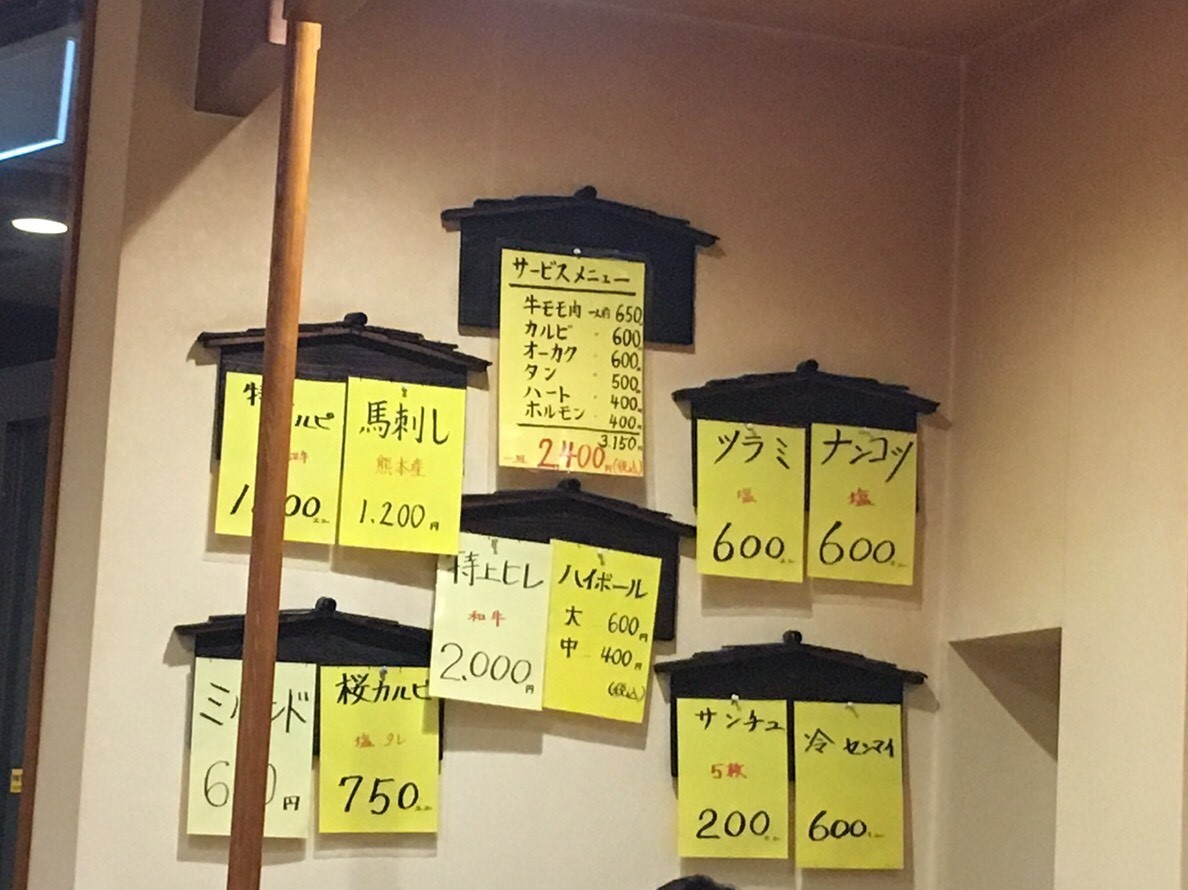 サービスメニュー
牛モモ肉 一人前 650円
カルビ 〃 600円
オーカク 〃 600円
タン 〃 500円
ハート 〃 400円
ホルモン 〃 400円
3,150円
2,400円(税込)
馬刺し
熊本産
1.200円
ツラミ
塩
600
ナンコツ
塩
600
特上ヒレ
和牛
2,000円
ハイボール
大 600円
中 400円
(税込)
桜カルビ
塩 タレ
750
円
サンチュ
5枚
200
冷センマイ
600